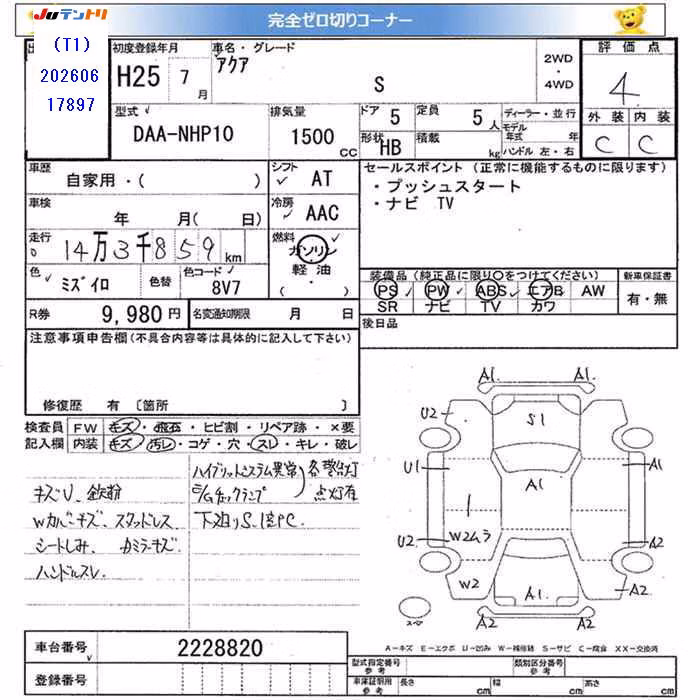 JUテントリ
完全ゼロ切りコーナー
(T1)
202606
17897
初度登録年月
H25 7月
車名・グレード
アクア
S
2WD
・
4WD
評価点
4
外装 内装
C C
型式
DAA-NHP10
排気量
1500 CC
ドア 5
定員 5人
形状 HB
積載 kg
ディーラー・並行
モデル年式 年
ハンドル 左・右
車歴
自家用・( )
シフト AT
車検
年 月( 日)
冷房 AAC
走行
14万3千859km
燃料
ガソリン
軽油
・( )
色 ミズイロ
色替
色コード 8V7
R券 9,980円
名変通知期限 月 日
セールスポイント (正常に機能するものに限ります)
・プッシュスタート
・ナビ TV
装備品(純正品に限り○をつけてください)
PS PW ABS エアB AW
SR ナビ TV カワ
新車保証書
有・無
後日品
注意事項申告欄(不具合内容等は具体的に記入して下さい)
修復歴 有 〔箇所 〕
検査員 記入欄
FW キズ・飛石・ヒビ割・リペア跡・×要
内装 キズ・汚レ・コゲ・穴・スレ・キレ・破レ
キズU、鉄粉
Wカバーキズ、スタッドレス
シートしみ、カミラーキズ
ハンドルスレ
ハイブリットシステム異常
E/Gチェックランプ
各警告灯
点灯有
下廻りS、
A1 A1
U2 S1
U1 A1 A1
U2 W2ムラ A2
W2 A1 A2
A2 A2
スペア
A-キズ E-エクボ U-凹み W-補修跡 S-サビ C-腐食 XX-交換済
車台番号 2228820
登録番号
型式指定番号 参考
類別区分番号 参考
車庫証明用 参考
長さ cm 幅 cm 高さ cm